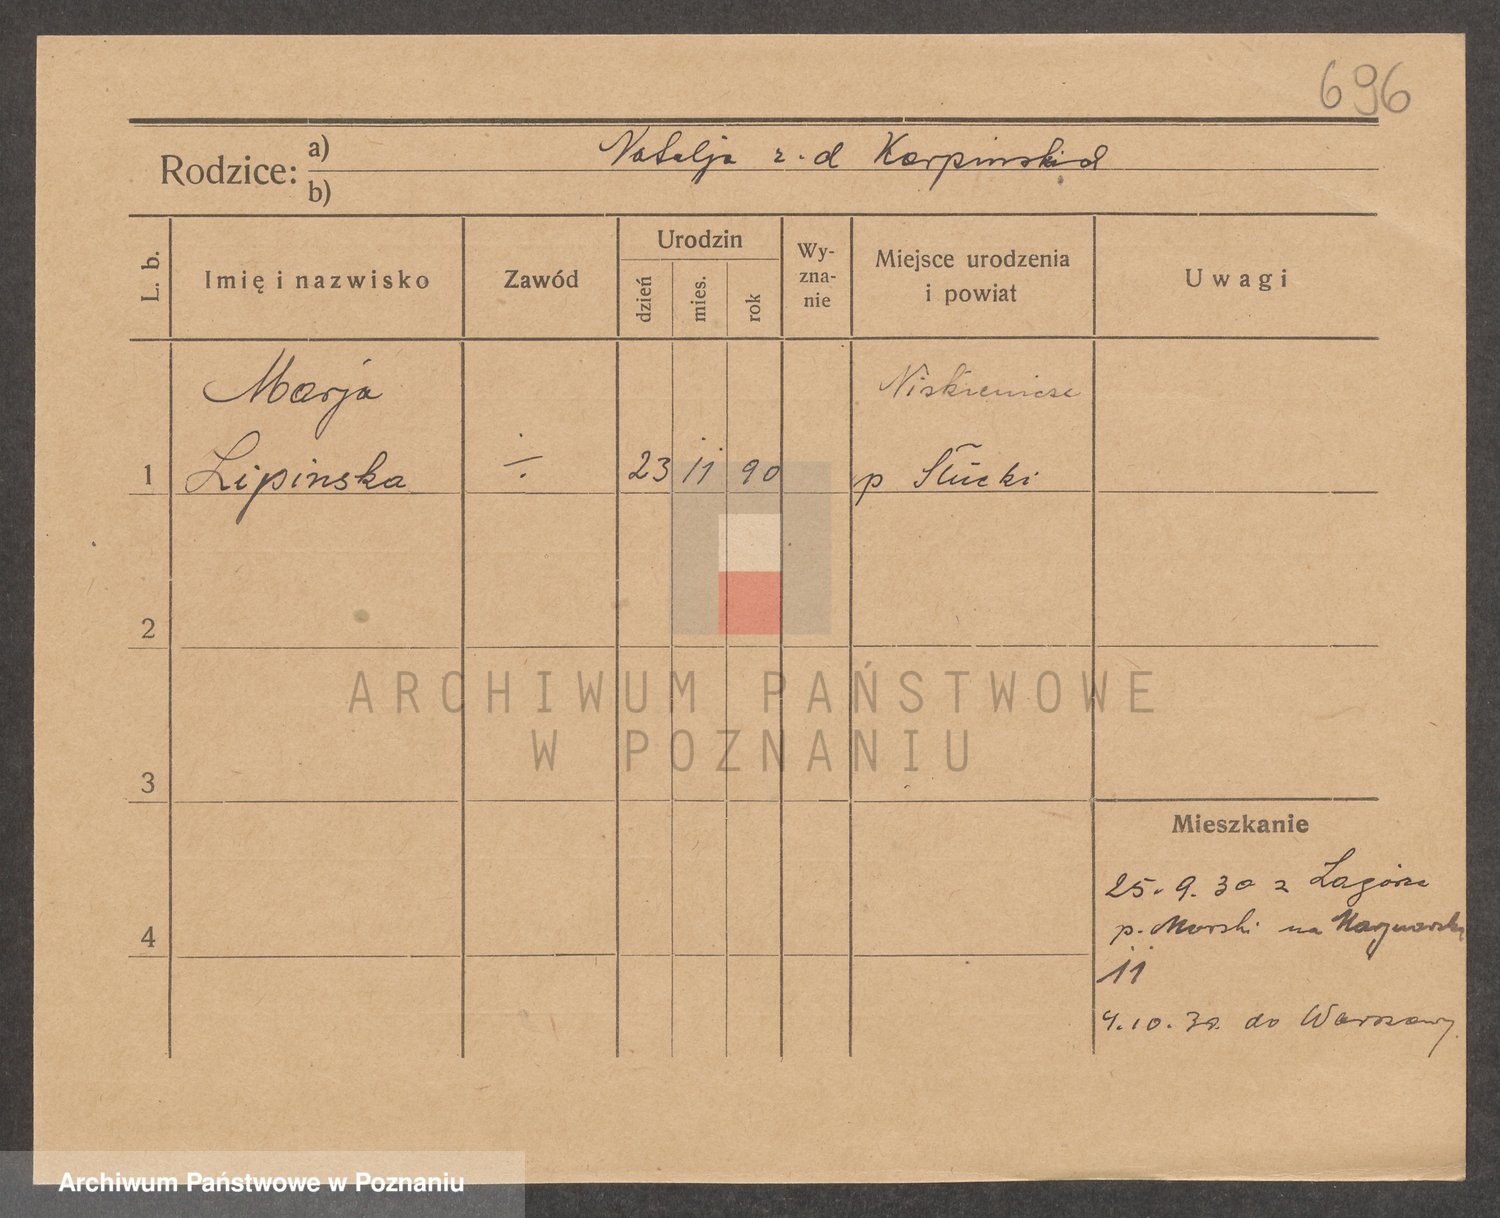 696
Rodzice:
a) Natalja z. d Karpinskich
b)
L. b.
Imię i nazwisko
Zawód
Urodzin
dzień
mies.
rok
Wy-
zna-
nie
Miejsce urodzenia
i powiat
Uwagi
Marja
1 Lipinska ÷ 23 11 90 p Słucki
2
3
4
Mieszkanie
25. 9. 30 z
p. Morski na
11
4. 10. 30. do Warszawy
ARCHIWUM PAŃSTWOWE
W POZNANIU
Archiwum Państwowe w Poznaniu